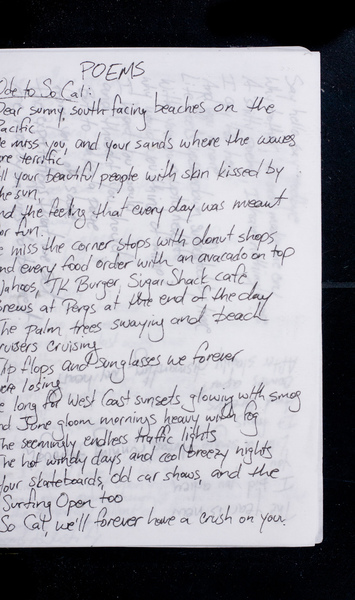 POEMS
Ode to So Cal:
Dear sunny, south facing beaches on the
Pacific
e miss you, and your sands where the waves
re terrific
ll your beautiful people with skin kissed by
he sun,
nd the feeling that every day was meant
or fun.
e miss the corner stops with donut shops
nd every food order with an avacado on top
Wahoos, TK Burger, Sugar Shack cafe
rews at Perqs at the end of the day
The palm trees swaying and beach
ruisers cruising
lip flops and sunglasses we forever
ere losing
e long for West Coast sunsets glowing with smog
nd June gloom mornings heavy with fog
he seemingly endless traffic lights
The hot windy days and cool breezy nights
Your skateboards, old car shows, and the
Surfing Open too
So Cal, we'll forever have a crush on you.